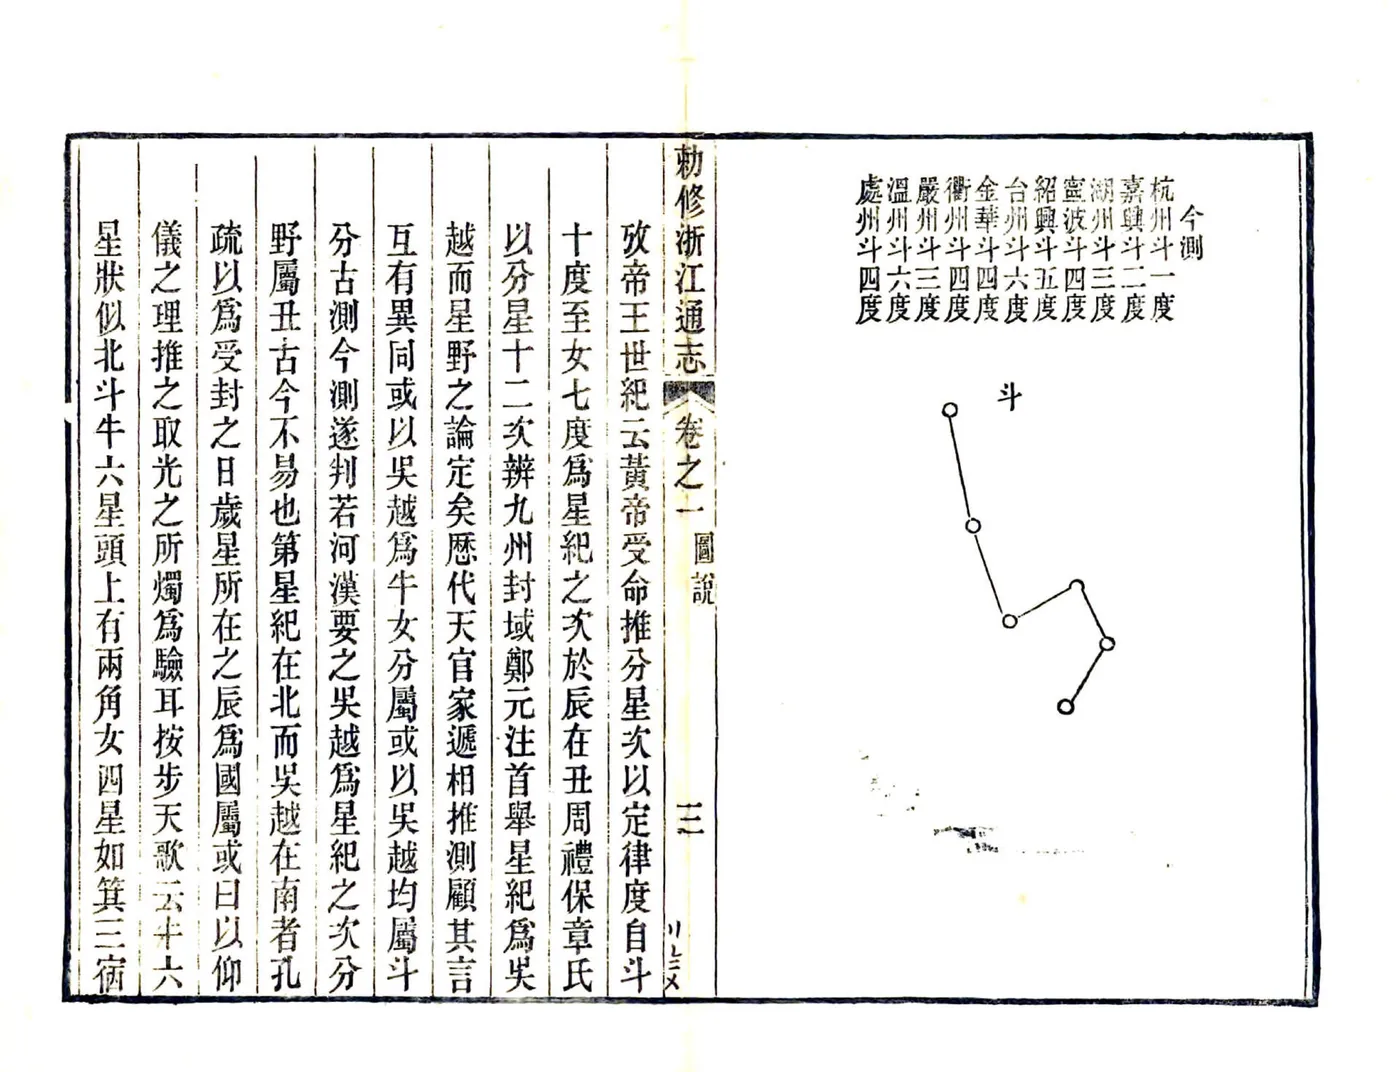 今測
杭州斗一度
嘉興斗二度
湖州斗三度
寧波斗四度
紹興斗五度
台州斗六度
金華斗四度
衢州斗四度
嚴州斗三度
溫州斗六度
處州斗四度
斗
勅修浙江通志
卷之一
圖說
三
攷帝王世紀云黃帝受命推分星次以定律度自斗
十度至女七度爲星紀之次於辰在丑周禮保章氏
以分星十二次辨九州封域鄭元注首舉星紀爲吳
越而星野之論定矣歴代天官家遞相推測顧其言
互有異同或以吳越爲牛女分屬或以吳越均屬斗
分古測今測遂判若河漢要之吳越爲星紀之次分
野屬丑古今不易也第星紀在北而吳越在南者孔
疏以爲受封之日歲星所在之辰爲國屬或曰以仰
儀之理推之取光之所燭爲驗耳按步天歌云斗六
星狀似北斗牛六星頭上有兩角女四星如箕三宿